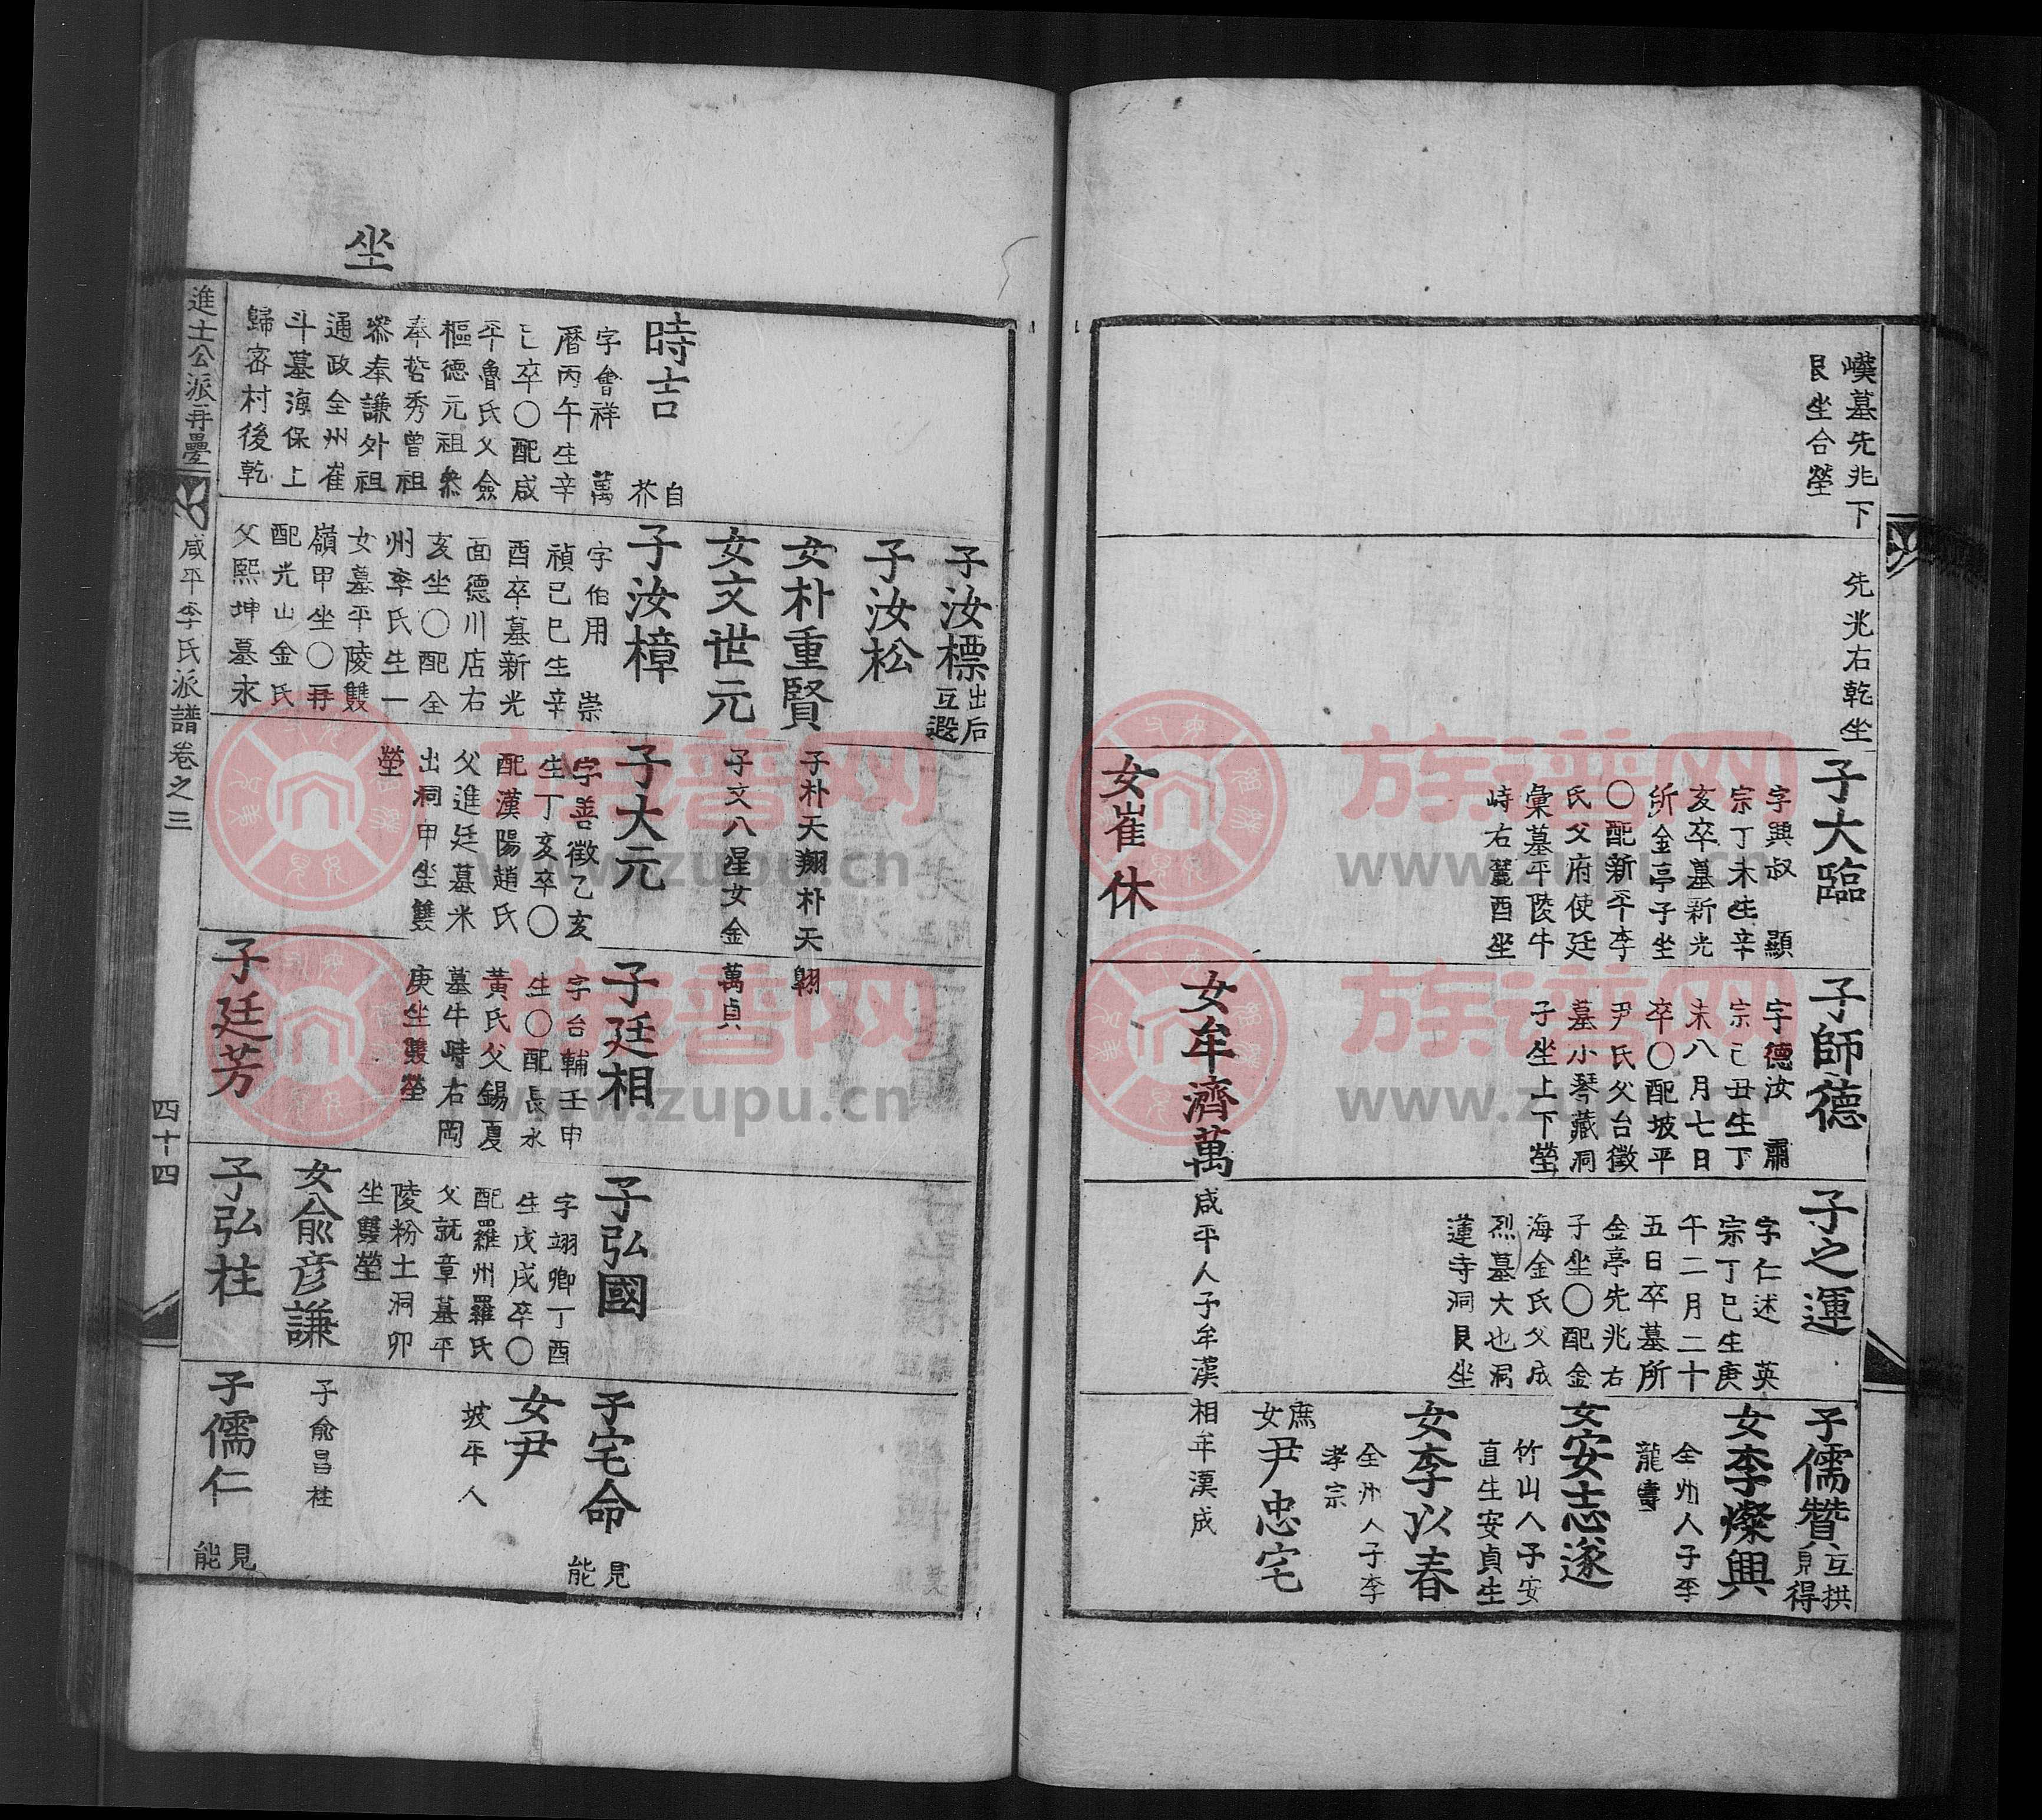 嶫墓先兆下
艮坐合瑩
先兆右乾坐
子大臨
字興叔 顯
宗丁未生辛
亥卒墓新光
所金亭子坐
〇配新平李
氏父府使廷
彙墓平陵牛
峙右麓酉坐
女崔休
子師德
字德汝 肅
宗己丑生丁
未八月七日
卒〇配坡平
尹氏父台徵
墓小琴藏洞
子坐上下瑩
女牟濟萬
咸平人子牟漢
相牟漢成
子之運
字仁述 英
宗丁巳生庚
午二月二十
五日卒墓所
金亭先兆右
子坐〇配金
海金氏父成
烈墓大也洞
蓮寺洞艮坐
子儒贊
互拱
見得
女李燦興
全州人子李
龍壽
女安志遂
竹山人子安
直生安貞生
女李以春
全州人子李
孝宗
庶
女尹忠宅
坐
時吉
自
芥
字會祥 萬
曆丙午生辛
巳卒〇配咸
平魯氏父僉
樞德元祖叅
奉哲秀曾祖
叅奉謙外祖
通政全州崔
斗墓海保上
歸密村後乾
子汝標
出后
互遐
子汝松
女朴重賢
子朴天翔朴天
翱
女文世元
子文八星女金
萬貞
子汝樟
字伯用 崇
禎己巳生辛
酉卒墓新光
面德川店右
亥坐〇配全
州李氏生一
女墓平陵雙
嶺甲坐〇再
配光山金氏
父熙坤墓永
子大元
字善徵乙亥
生丁亥卒〇
配漢陽趙氏
父進廷墓米
出洞甲坐雙
瑩
子廷相
字台輔壬申
生〇配長水
黃氏父錫夏
墓牛峙右岡
庚坐雙瑩
子廷芳
子弘國
字翊卿丁酉
生戊戌卒〇
配羅州羅氏
父就章墓平
陵粉土洞卯
坐雙瑩
女兪彦謙
子兪昌柱
子弘柱
子宅命
見
能
女尹
坡平人
子儒仁
見
能
進士公派再疊
咸平李氏派譜卷之三
四十四
族谱网
www.zupu.cn
族谱网
www.zupu.cn
族谱网
www.zupu.cn
族谱网
www.zupu.cn